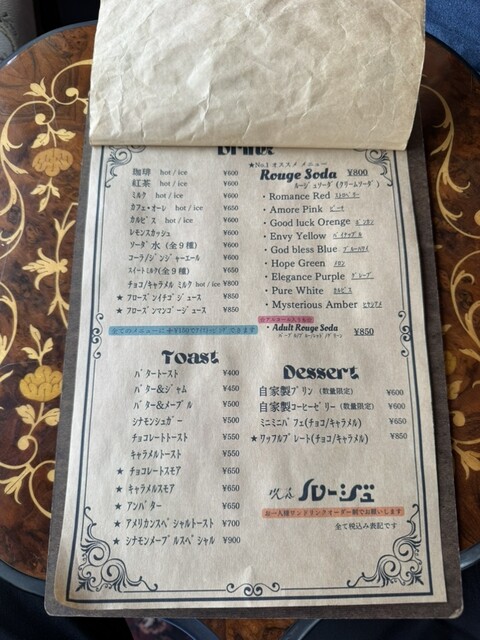 Drink
珈琲 hot / ice ¥600
紅茶 hot / ice ¥600
ミルク hot / ice ¥600
カフェ・オーレ hot / ice ¥650
カルピス hot / ice ¥600
レモンスカッシュ ¥600
ソーダ水(全9種) ¥600
コーラ/ジンジャーエール ¥600
スイートミルク(全9種) ¥650
チョコ/キャラメル ミルク hot / ice ¥800
★ フローズンイチゴジュース ¥850
★ フローズンマンゴージュース ¥850
全てのメニューに+¥150で
★No.1 オススメ メニュー
Rouge Soda ¥800
ルージュソーダ(クリームソーダ)
・Romance Red ストロベリー
・Amore Pink ピーチ
・Good luck Orenge オレンジ
・Envy Yellow パイナップル
・God bless Blue ブルーハワイ
・Hope Green メロン
・Elegance Purple グレープ
・Pure White カルピス
・Mysterious Amber
☆アルコール入り☆
・Adult Rouge Soda ¥850
Toast
バタートースト ¥400
バター&ジャム ¥450
バター&メープル ¥500
シナモンシュガー ¥500
チョコレートトースト ¥550
キャラメルトースト ¥550
★ チョコレートスモア ¥650
★ キャラメルスモア ¥650
★ アンバター ¥650
★ アメリカンスペシャルトースト ¥700
★ シナモンメープルスペシャル ¥900
Dessert
自家製プリン (数量限定) ¥600
自家製コーヒーゼリー (数量限定) ¥600
ミニミニパフェ(チョコ/キャラメル) ¥650
★ワッフルプレート(チョコ/キャラメル) ¥850
喫茶 ルージュ
お一人様ワンドリンクオーダー制でお願いします
全て税込み表記です